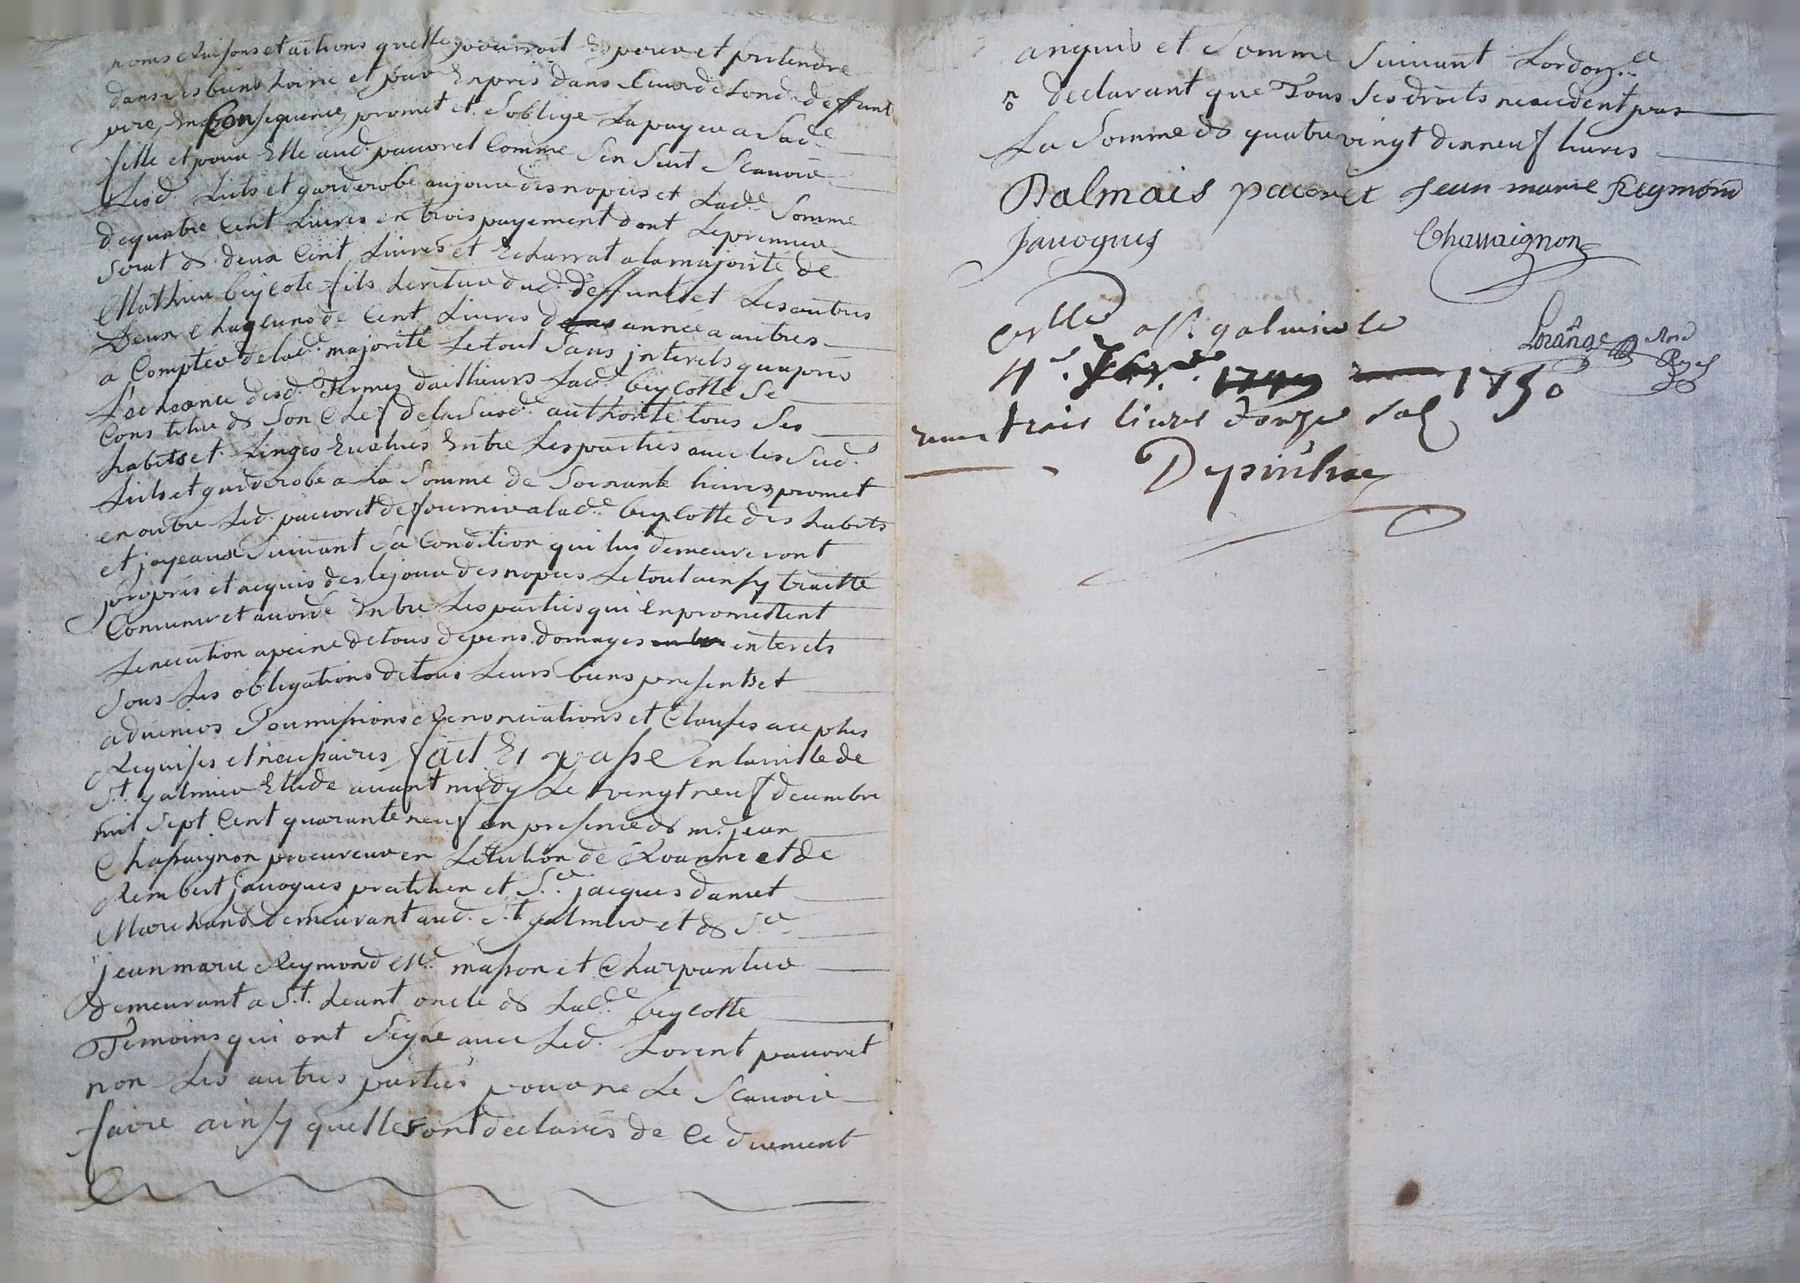 noms raisons et actions quelle pourroit Esperer et pretendre
dans les biens hoirie et pour Expres dans ceux de sond. deffunt
pere, En Consequence, promet et s'oblige La payer a Sad.e
fille et pour Elle aud. pacoret Comme s'en suit Scauoir
Lesd. Lits et garderobe au jour des nopces et Lad.e Somme
de quatre Cent Livres en trois payement dont Le premier
serat de deux Cent Livres et Echerrat a la majorité de
Mathieu beycote fils heritier dud. deffunt et Les autres
Deux Chaqun de Cent Livres d annéé a autres
a Compter de lad. majorité Le tout Sans interets quapres
L'echeance desd. Termes d'ailleurs Lad.e beycotte Se
Constitue de Son Chef de la Susd.e authorité tous Ses
habits et Linges Evalués Entre Les parties avec les Sud.
Lits et garderobe a La Somme de Soixante Livres, promet
en outre Led. pacoret de fournir a lad.e beycotte des habits
et joyeaux Suivant sa Condition qui lui demeureront
propres et acquis des le jour des nopces Le tout ainsy traitté
Convenu et acordé Entre Les parties qui En promettent
L'execution a peine de tous depens domages interets
sous Les obligations de tous Leurs biens presents et
advenirs Soumissions Renonciations et Clauses a ce plus
Requises et necessaires, fait Et passé En la ville de
St. galmier Etude avant midy Le vingt neuf decembre
mil sept Cent quarante neuf en presence de m.e jean
Chassaignon procureur en L'election de Roanne et de
Rimbert javogues praticien et S.r jacques damet
Marchand demeurant aud. St. galmier et de S.r
jean marie Reymond M.e masson et Charpantier
Demeurant a St. heant oncle de Lad.e beycotte
Temoins qui ont Signé avec Led. Lorent pacoret
non Les autres parties pour ne Le Scavoir
faire ainsy quelles ont declarés de Ce duement
enquis et Somme Suivant Lordon.ce
declarant que Tous Ses droits nexcedent pas
La Somme de quatre vingt dixneuf livres
Dalmais pacoret Jean marie Reymond
Javogues Chassaignon
a St. galmier le
4.e 1750
trois livres douze sols
Depinhac